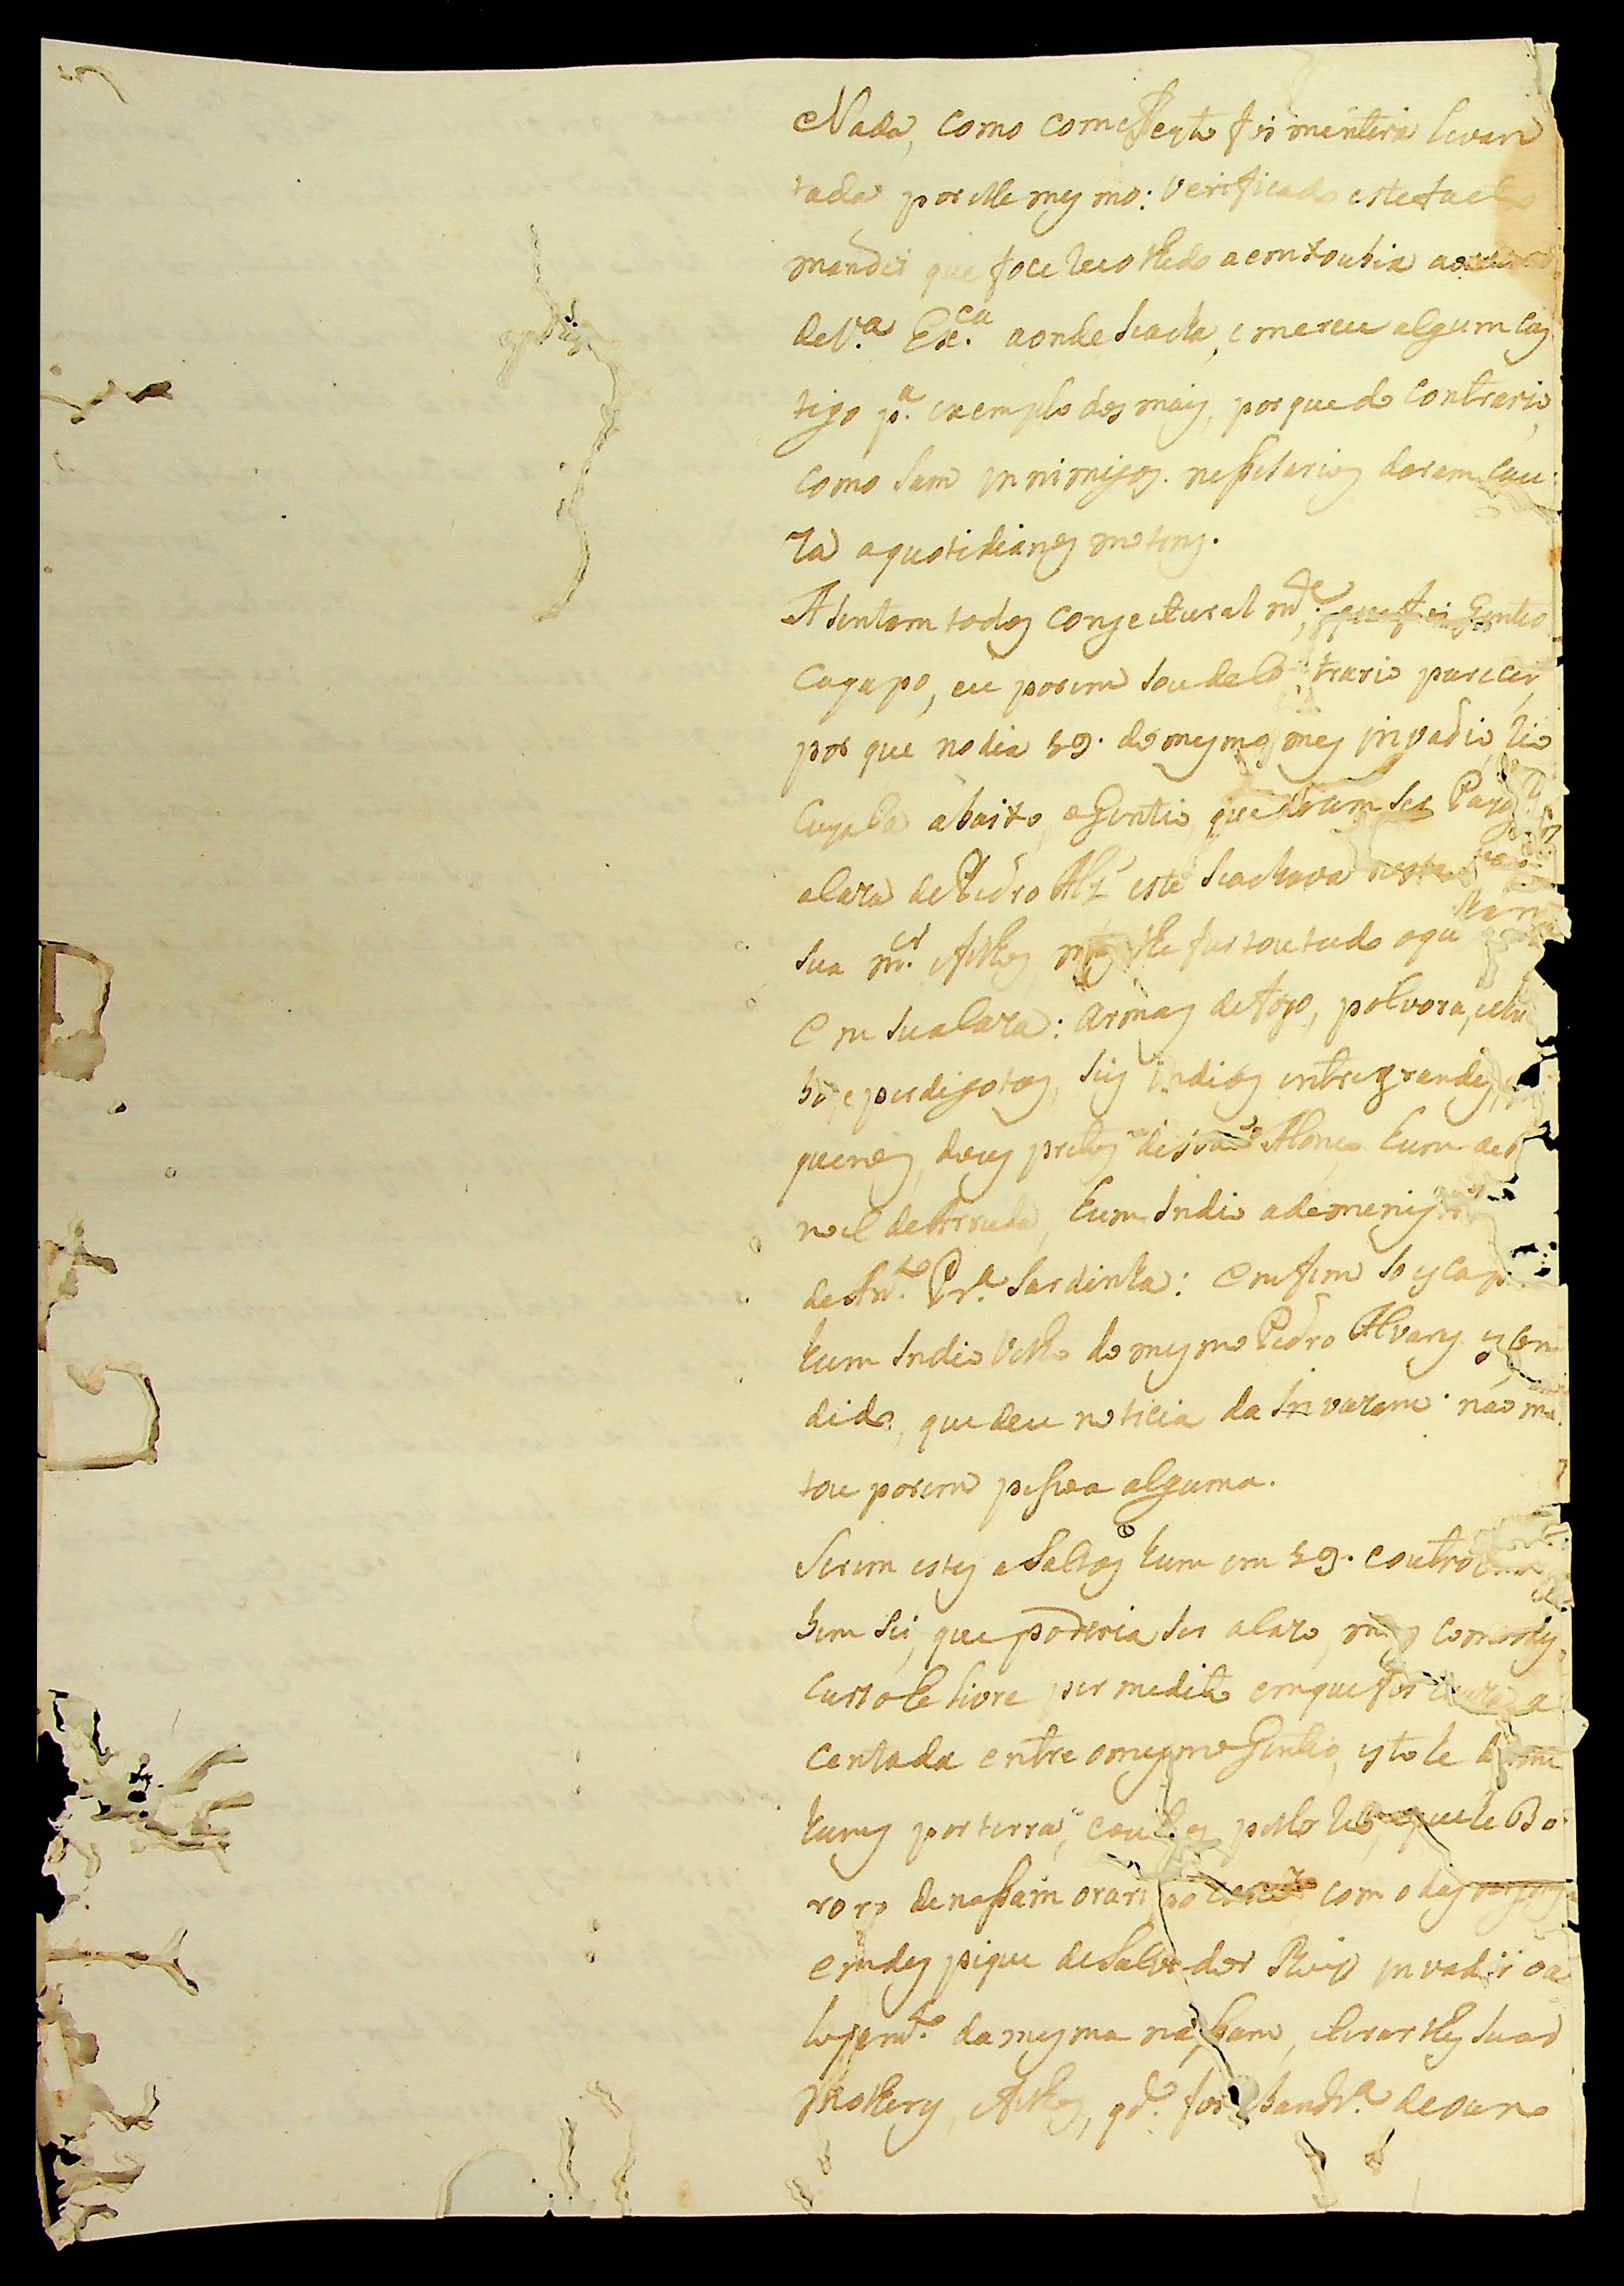 Nada, como comeffeyto foi mentira levan
tada por elle mesmo: Verificado este facto
mandei que foce recolhido a emxouvia a
de V.a Ex.ca aonde seacha, e merece algum cas
tigo p.a exemplo dos mais, porque do contrario,
como sam innimigos nessesarios daram cau
za a quotidianos motins.
Asentam todos conjecturalm.te, que foi Gentio
Cayapo, eu porem sou de contrario parecer,
por que no dia 29. do mesmo mes invadio, rio
Cuyaba abaixo, o Gentio, que dizem ser Paya
a caza de Pedro Alz' este seachava
sua m.er e filhos, mas lhe furtou tudo o que
em sua caza: armas de fogo, polvora, chu
bo, e perdigotos, seis indios entre grandes, e
quenos, dous pretos de Alonço, hum de
noel de Arruda, hum Indio ademenis
de An.to Pr.a Sardinha: emfim so escapou
hum Indio velho do mesmo Pedro Alvares escon
dido, que deu noticia da invazam: não ma
tou porem pessoa alguma.
Serem estes asaltos hum em 29. e outro
bem sei, que poderia ser acazo, mas
curso he livre permedito em que foi a
centada entre o mesmo Gentio, isto he
huns por terra, e outros pello rio, que he Bo
roro denassam orari po com o
em despique de Salvador Roiz invadir o a
lojam.to da mesma nassam, e tirar lhes suas
molheres, e filhos, q.do foi a bandr.a de ouro